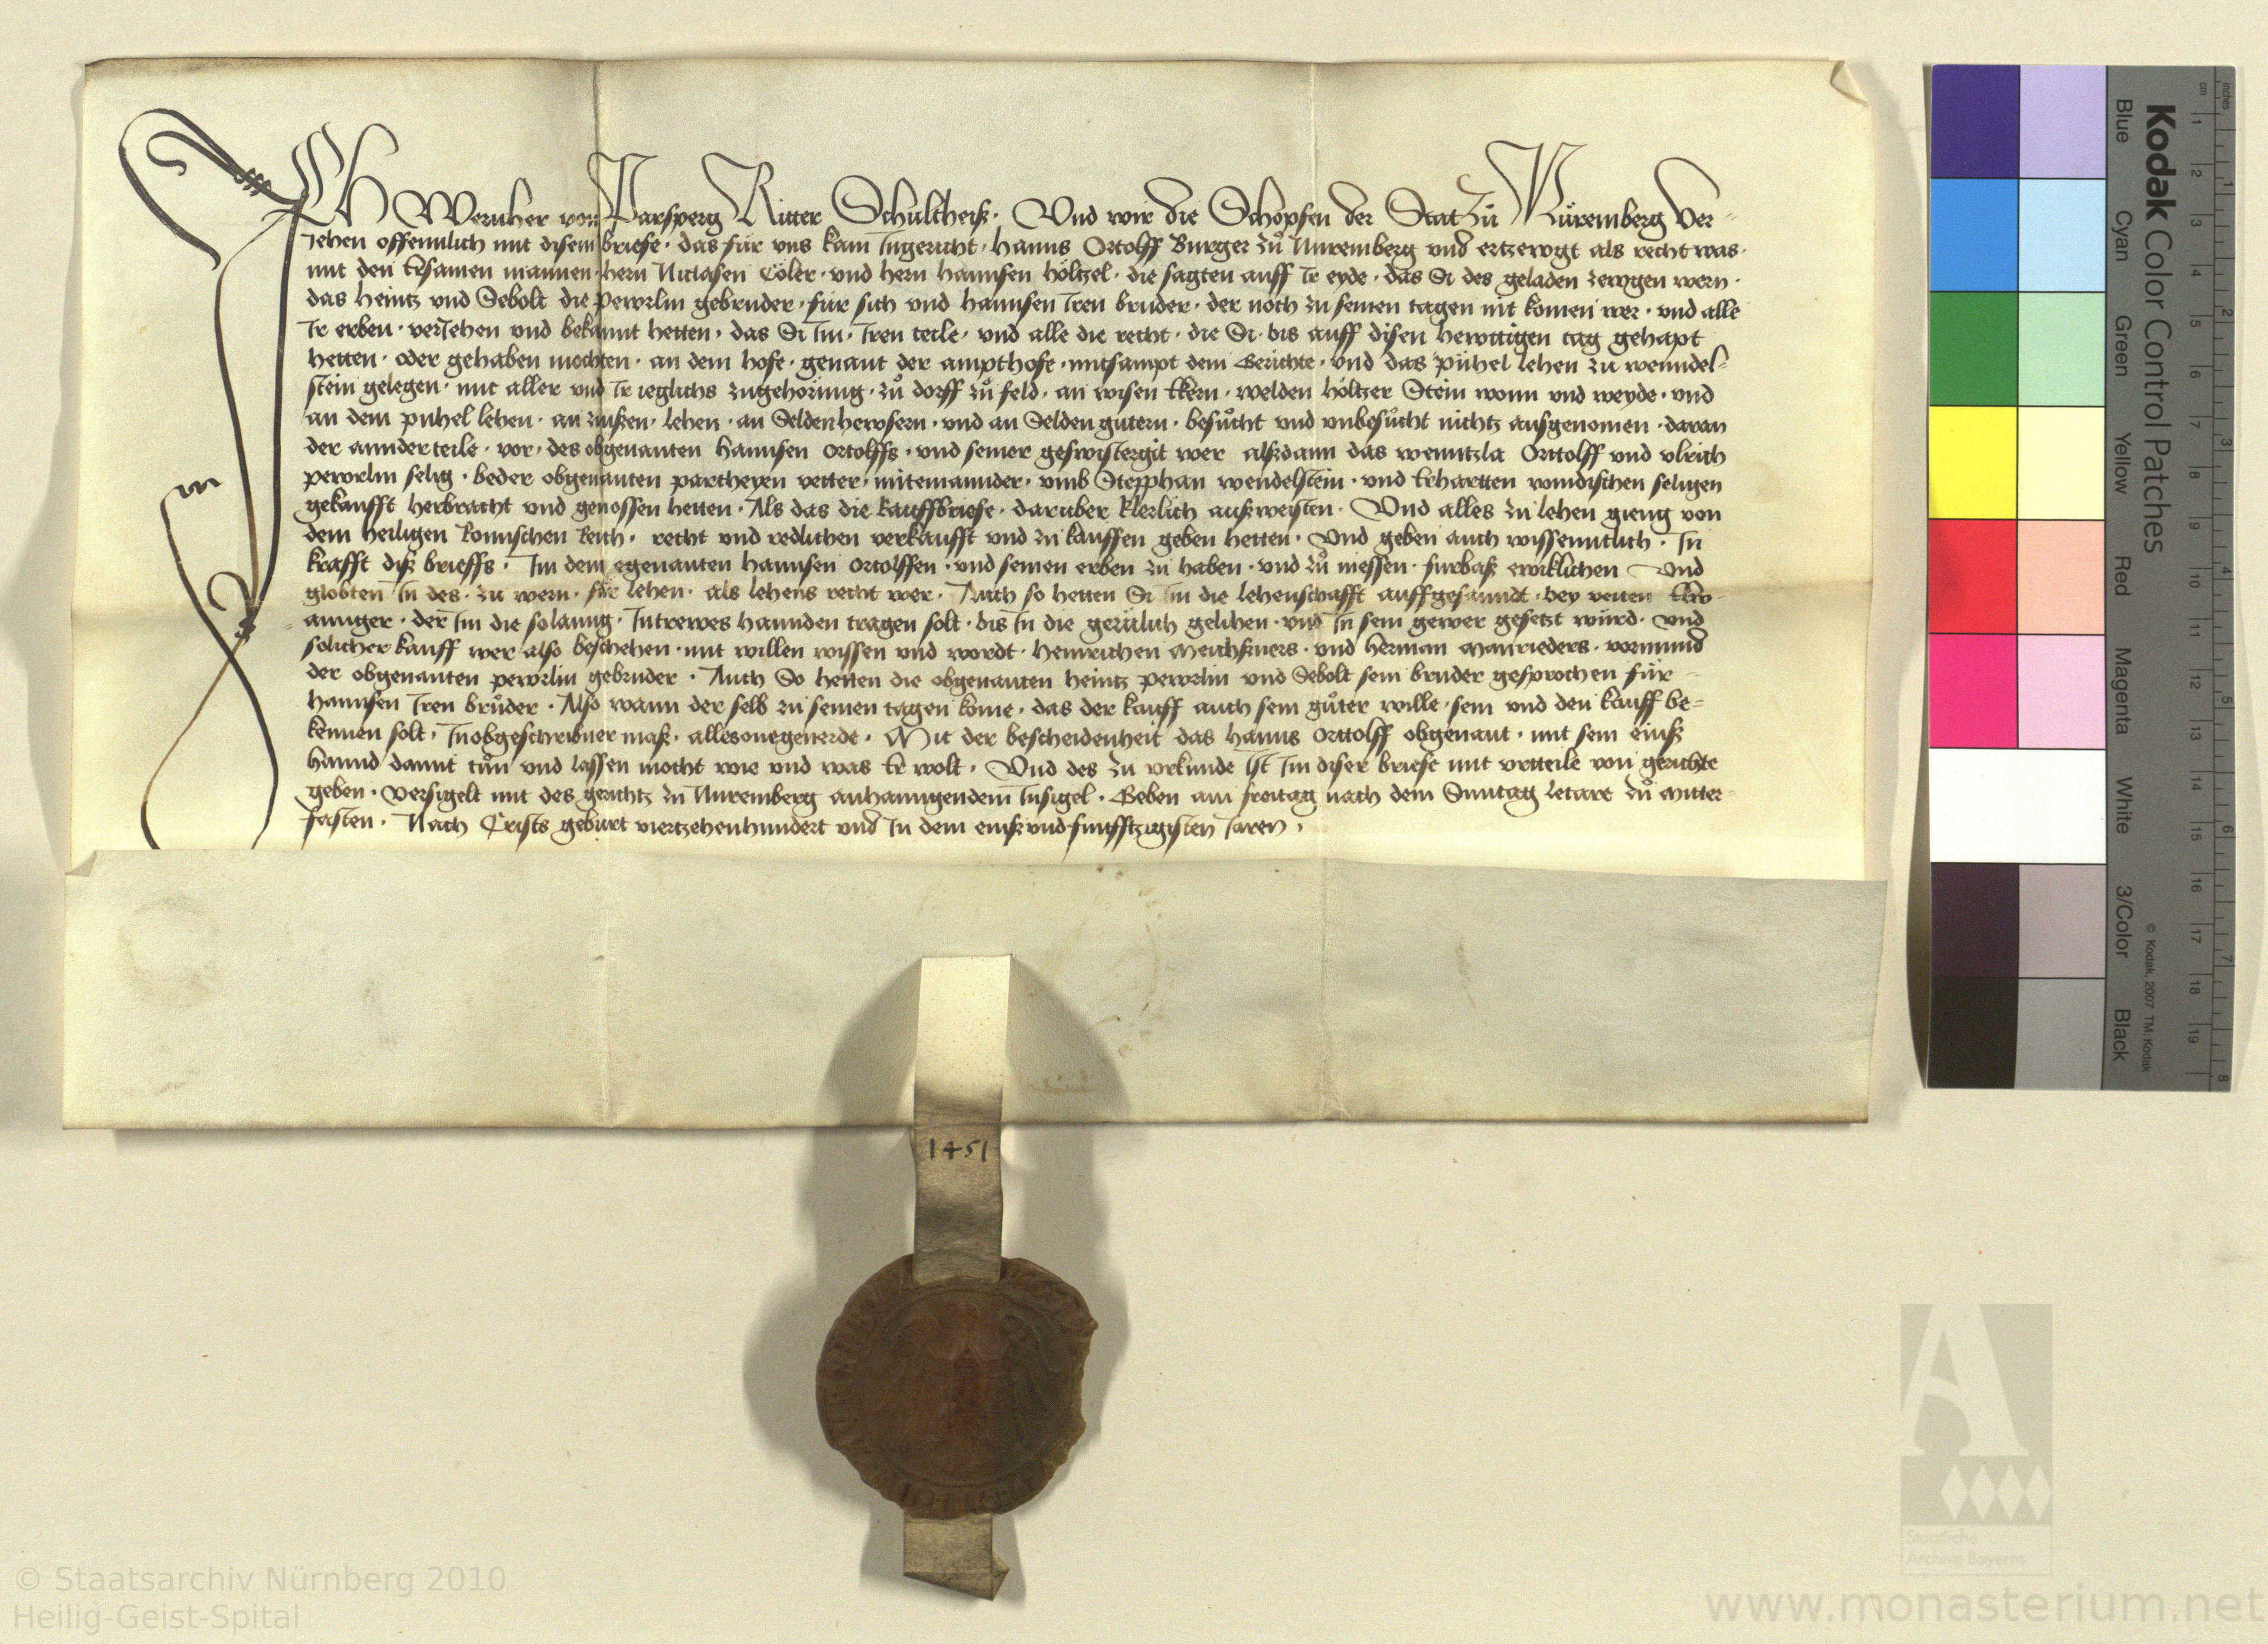 ICH Wernher von Parsperg Ritter Schultheiß · Und wir die Schopfen der Stat zů Nuremberg Ver-
Jehen offennlich mit disem briefe · das für vns kam Ingericht · Hanns Ortolff Burger zů Nuremberg vnd ertzewgt als recht was ·
mit den Ersamen mannen · hern Niclasen Coler · vnd hern Hannsen Holtzel · die sagten auff Ir eyde · das Si des geladen zewgen wern ·
das Heintz vnd Sebolt die pewrlin gebruder · für sich vnd Hannsen Iren bruder · der noch zu seinen tagen nit komen wer · vnd alle
Ir erben · verJehen vnd bekannt hetten · das Si Im · Iren teile · vnd alle die recht · die Si · bis auff disen hewttigen tag gehapt
hetten · oder gehaben mochten · an dem hofe · genant der ampthofe · mitsampt dem Gerichte · vnd das pühel lehen zu wenndel-
stein gelegen · mit aller vnd Ir ieglichs zugehörung · zů dorff zů feld · an wisen Ekern · welden höltzer Stein wonn vnd weyde · vnd
an dem pühel lehen · an lehen · an Seldenhewsern · vnd an Selden gütern · besůcht vnd vnbesůcht nichtz ausgenomen · daran
der annder teile · vor · des obgenanten Hannsen Ortolffs · vnd seiner geswistergit wer alßdann das wenntzla Orttolff vnd vlrich
pewrlin selig · beder obgenanten partheyen vetter · miteinannder · vmb Stepphan wendelstein · vnd Erhartten windischen seligen
gekaufft herbracht vnd genossen hetten · Als das die kauffbriefe · daruber klerlich außweisten · Vnd alles zu lehen gieng von
dem heiligen Romischen Reich · recht vnd redlichen verkaufft vnd zu kauffen geben hetten · Vnd geben auch wissenntlich · In
krafft diß brieffs · Im dem egenanten Hannsen Ortolffen · vnd seinen erben zu haben · vnd zů niessen · furbaß ewiklichen Vnd
globten In des · zu wern · für lehen · als lehens recht wer · Auch so hetten Si Im die lehenschafft auffgesanndt · bey
der Im die solanng · Intrewes hannden tragen solt · bis In die gerulich gelihen · vnd In sein gewer gesetzt würd · vnd
solicher kauff wer also beschehen · mit willen wissen vnd wordt · Heinrichen Meichßners · vnd Herman Manrieders · vormund
der obgenanten pewrlin gebruder · Auch So hetten die obgenanten Heintz pewrlin vnd Sebolt sein bruder gesprochen für
Hannsen Iren brůder · Also wann der selb zu seinen tagen kome · das der kauff auch sein gůter wille · sein vnd den kauff be-
kennen solt · Inobgeschribner maß · allesonegeuerde · Mit der bescheidenheit das Hanns Orttolff obgenant · mit sein einß
hannd damit tůn vnd lassen mocht wie vnd was Er wolt · Vnd des zu vrkunde Ist Im diser briefe mit vrtteile von gerichte
geben · Versigelt mit des gerichtz zu Nuremberg anhanngendem Insigel · Geben am freitag nach dem Suntag letare zů mitter
fasten · Nach Crists geburt viertzehenhundert vnd In dem einßvndfunfftzigisten Jaren ·
1451
Kodak Color Control Patches
Blue Cyan Green Yellow Red Magenta White 3/Color Black
© Kodak, 2007 TM: Kodak
inches 1 2 3 4 5 6 7 8
cm 1 2 3 4 5 6 7 8 9 10 11 12 13 14 15 16 17 18 19
© Staatsarchiv Nürnberg 2010
Heilig-Geist-Spital
Staatliche
Archive Bayerns
www.monasterium.net